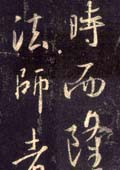 時而隆
法師者